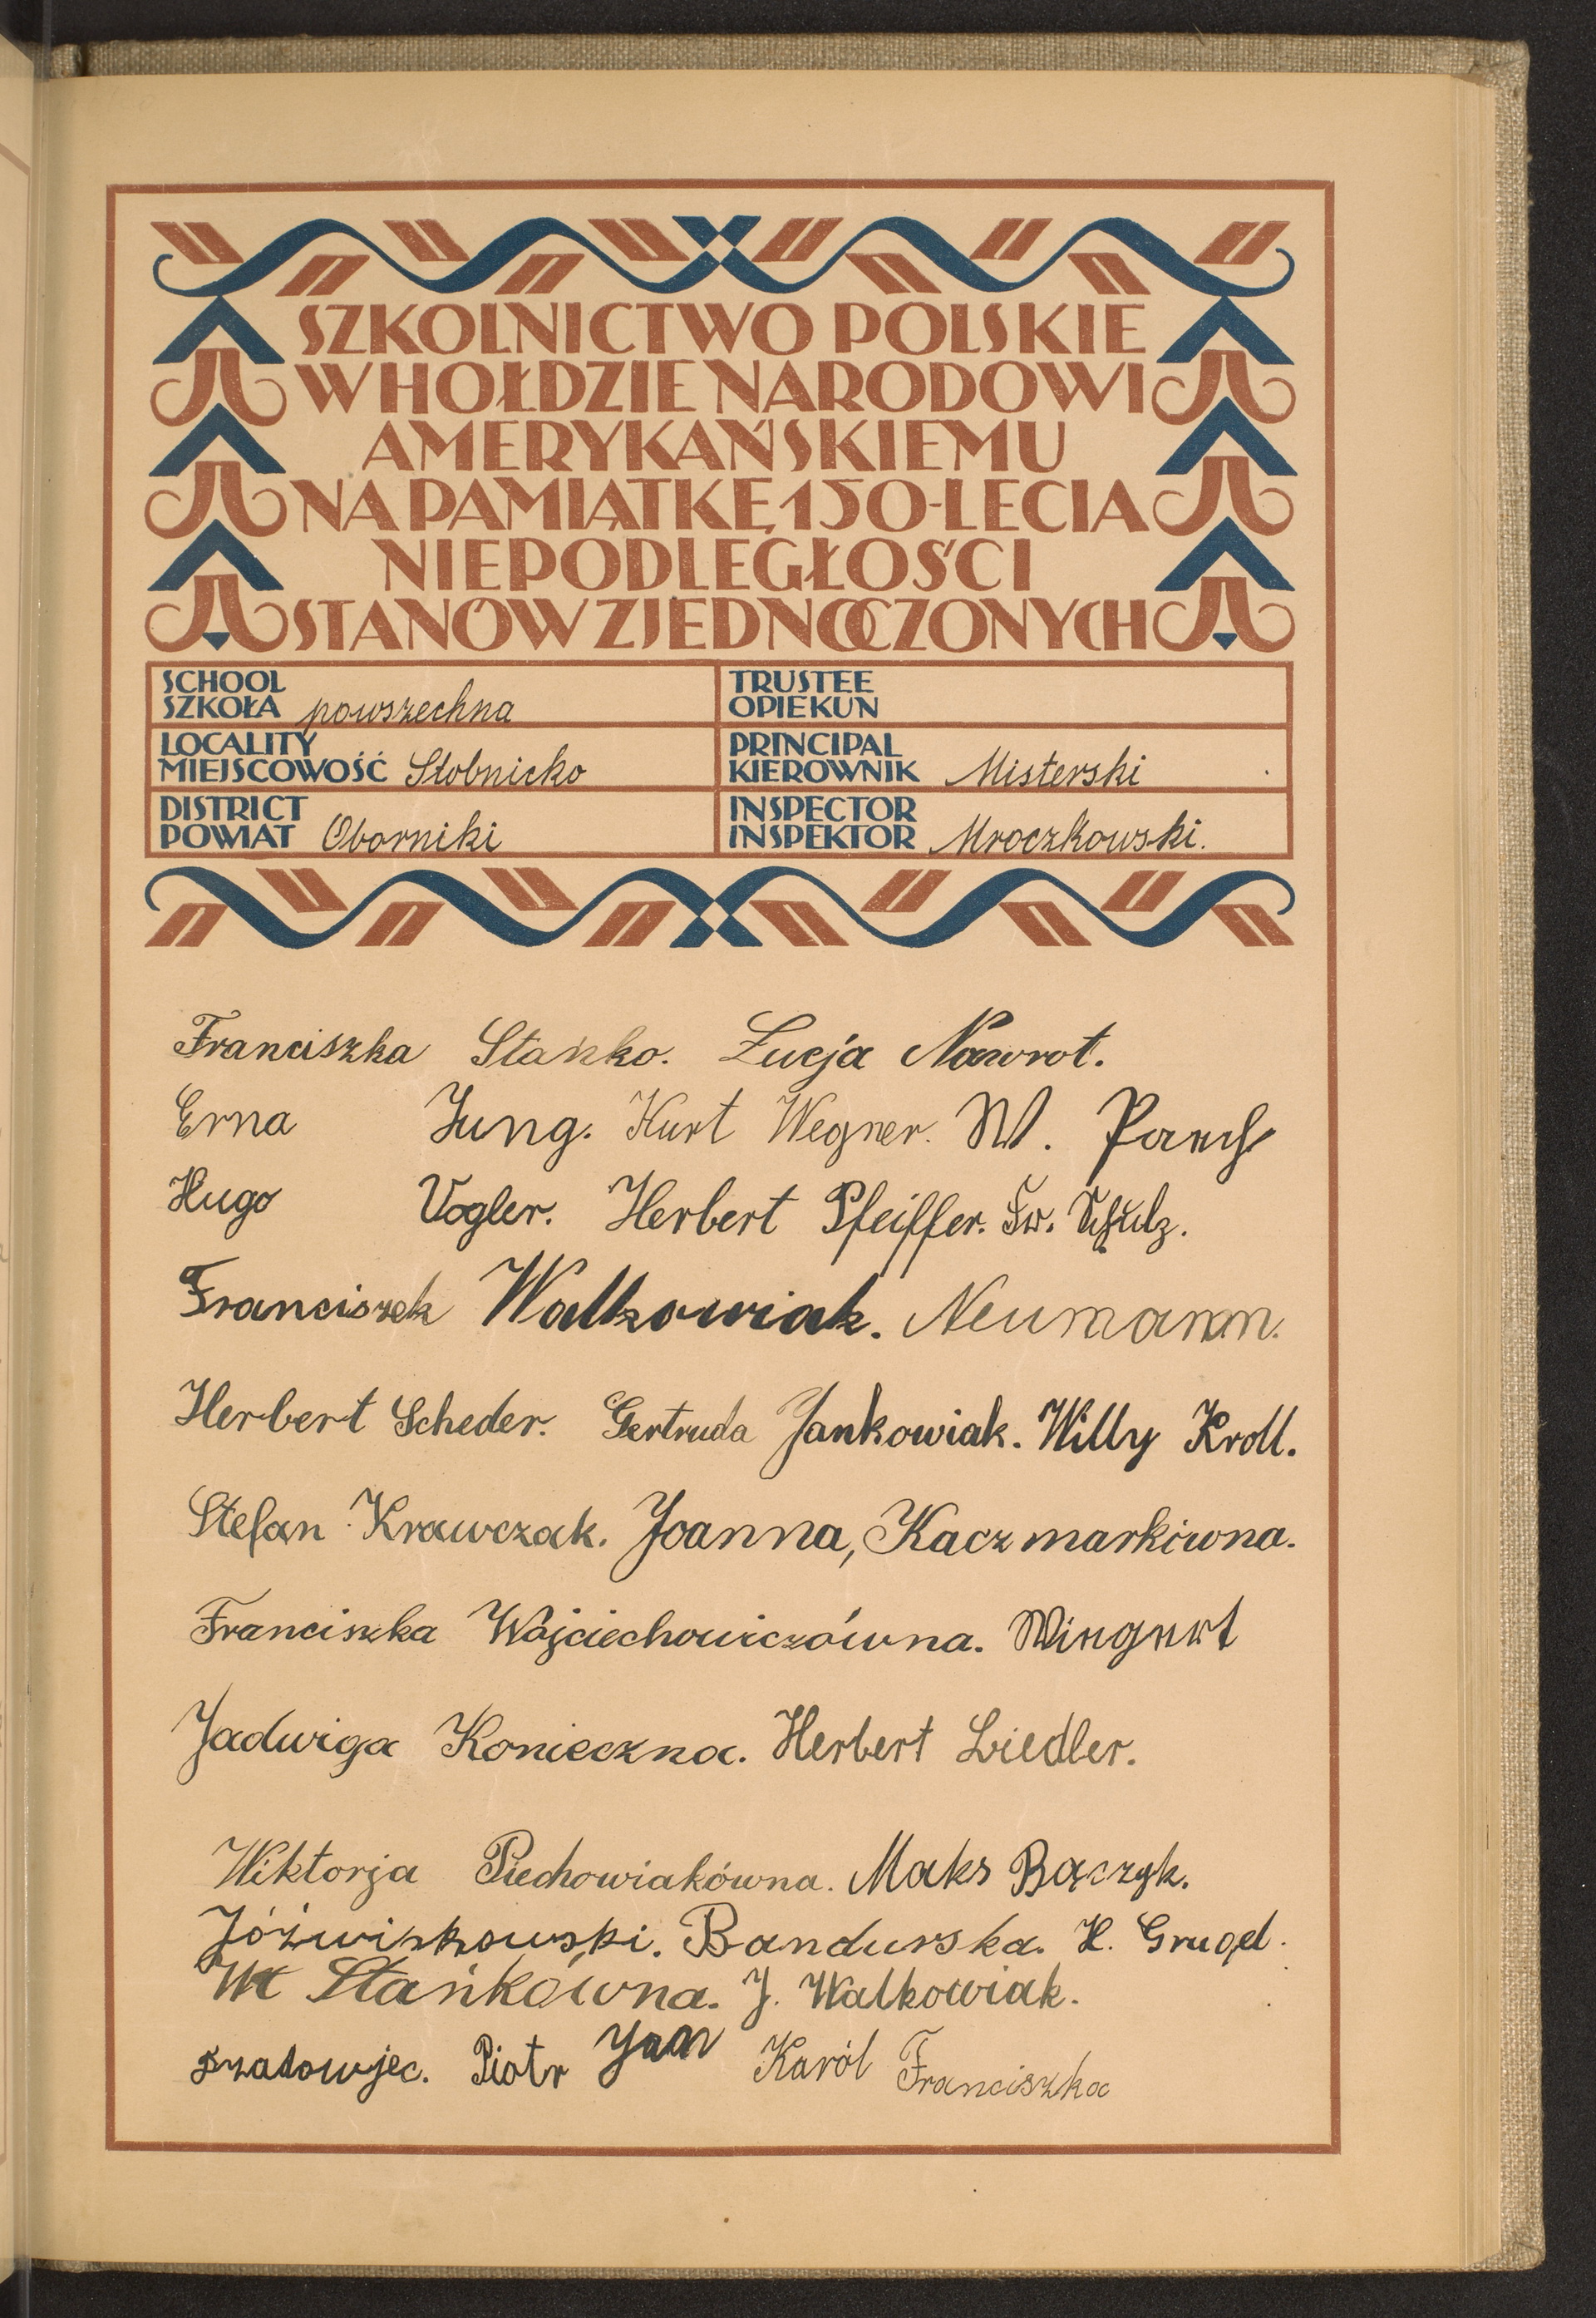 SZKOLNICTWO POLSKIE
W HOŁDZIE NARODOWI
AMERYKAŃSKIEMU
NA PAMIĄTKĘ 150-LECIA
NIEPODLEGŁOŚCI
STANÓW ZJEDNOCZONYCH
SCHOOL
SZKOŁA powszechna
TRUSTEE
OPIEKUN
LOCALITY
MIEJSCOWOŚĆ Słobnicko
PRINCIPAL
KIEROWNIK Misterski
DISTRICT
POWIAT Oborniki
INSPECTOR
INSPEKTOR Mroczkowski.
Franciszka Stańko. Łucja Nawrot.
Erna Jung. Kurt Wegner. W.
Hugo Vogler. Herbert Pfeiffer. Fr. Schulz.
Franciszek Walkowiak. Neumann.
Herbert Scheder. Gertruda Jankowiak. Willy Kroll.
Stefan Krawczak. Joanna, Kaczmarkiwna.
Franciszka Wojciechowiczówna. Wingert
Jadwiga Konieczna. Herbert Liedler.
Wiktorja Piechowiakówna. Maks Bączyk.
Jóźwiakowski. Bandurska. H. Grugel.
W Stańkówna. J. Walkowiak.
Piotr Jan Karól Franciszka